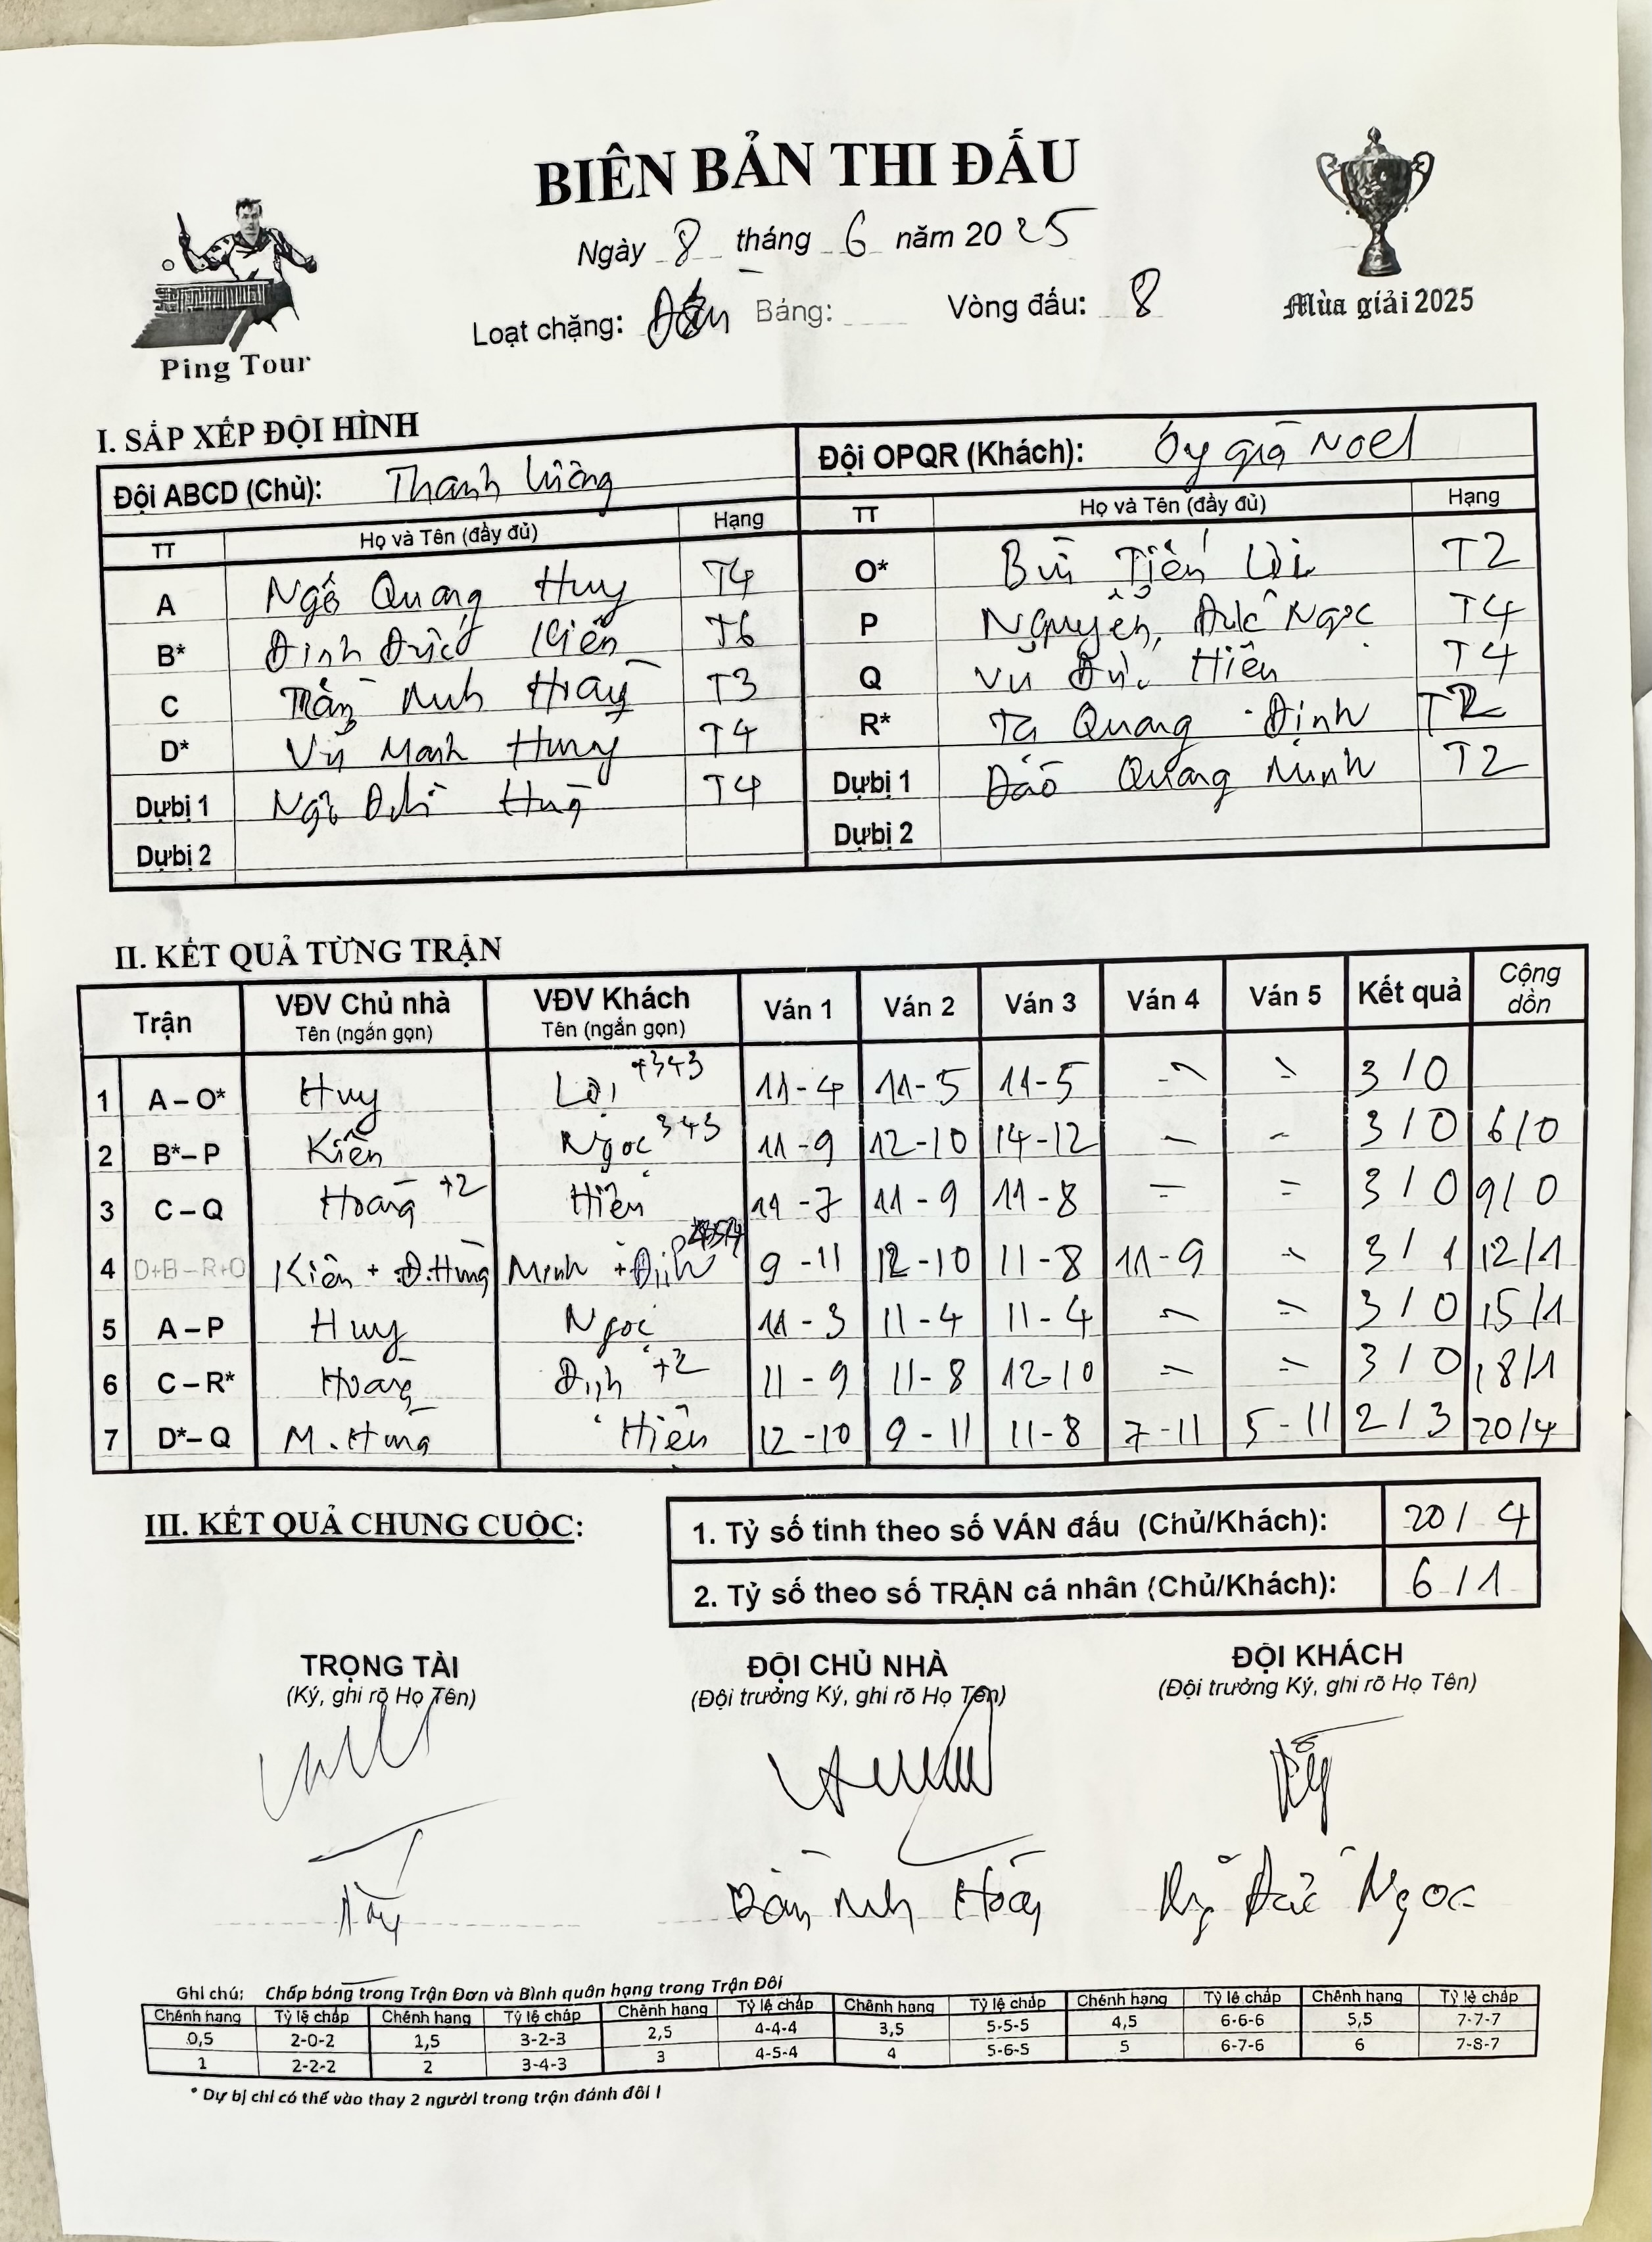 BIÊN BẢN THI ĐẤU
Ngày 8 tháng 6 năm 2025
Loạt chặng: Bảng: Vòng đấu: 8
Ping Tour
Mùa giải 2025
I. SẮP XẾP ĐỘI HÌNH
Đội ABCD (Chủ): Thanh Đội OPQR (Khách): Ông già Noel
TT Họ và Tên (đầy đủ) Hạng TT Họ và Tên (đầy đủ) Hạng
A Ngô Quang Huy T4 O* Bùi Tiến Lợi T2
B* Đinh Đức Kiên T6 P Nguyễn Đức Ngọc T4
C Trần Anh Hoàng T3 Q Vũ Đức Hiên T4
D* Vũ Mạnh Hùng T4 R* Tạ Quang Định T2
Dự bị 1 Ngô Hùng T4 Dự bị 1 Đào Quang Minh T2
Dự bị 2 Dự bị 2
II. KẾT QUẢ TỪNG TRẬN
Trận VĐV Chủ nhà Tên (ngắn gọn) VĐV Khách Tên (ngắn gọn) Ván 1 Ván 2 Ván 3 Ván 4 Ván 5 Kết quả Cộng dồn
1 A – O* Huy Lợi +343 11-4 11-5 11-5 - - 3/0
2 B*– P Kiên Ngọc 343 11-9 12-10 14-12 - - 3/0 6/0
3 C – Q Hoàng +2 Hiên 11-7 11-9 11-8 - - 3/0 9/0
4 D+B – R+O Kiên + Đ.Hùng Minh + Định 9-11 12-10 11-8 11-9 - 3/1 12/1
5 A – P Huy Ngọc 11-3 11-4 11-4 - - 3/0 15/1
6 C – R* Hoàng Định +2 11-9 11-8 12-10 - - 3/0 18/1
7 D*– Q M. Hùng Hiên 12-10 9-11 11-8 7-11 5-11 2/3 20/4
III. KẾT QUẢ CHUNG CUỘC:
1. Tỷ số tính theo số VÁN đấu (Chủ/Khách): 20/4
2. Tỷ số theo số TRẬN cá nhân (Chủ/Khách): 6/1
TRỌNG TÀI ĐỘI CHỦ NHÀ ĐỘI KHÁCH
(Ký, ghi rõ Họ Tên) (Đội trưởng Ký, ghi rõ Họ Tên) (Đội trưởng Ký, ghi rõ Họ Tên)
Trần Anh Hoàng Ng Đức Ngọc
Ghi chú: Chấp bóng trong Trận Đơn và Bình quân hạng trong Trận Đôi
Chênh hạng Tỷ lệ chấp Chênh hạng Tỷ lệ chấp Chênh hạng Tỷ lệ chấp Chênh hạng Tỷ lệ chấp Chênh hạng Tỷ lệ chấp Chênh hạng Tỷ lệ chấp
0,5 2-0-2 1,5 3-2-3 2,5 4-4-4 3,5 5-5-5 4,5 6-6-6 5,5 7-7-7
1 2-2-2 2 3-4-3 3 4-5-4 4 5-6-5 5 6-7-6 6 7-8-7
* Dự bị chỉ có thể vào thay 2 người trong trận đánh đôi !